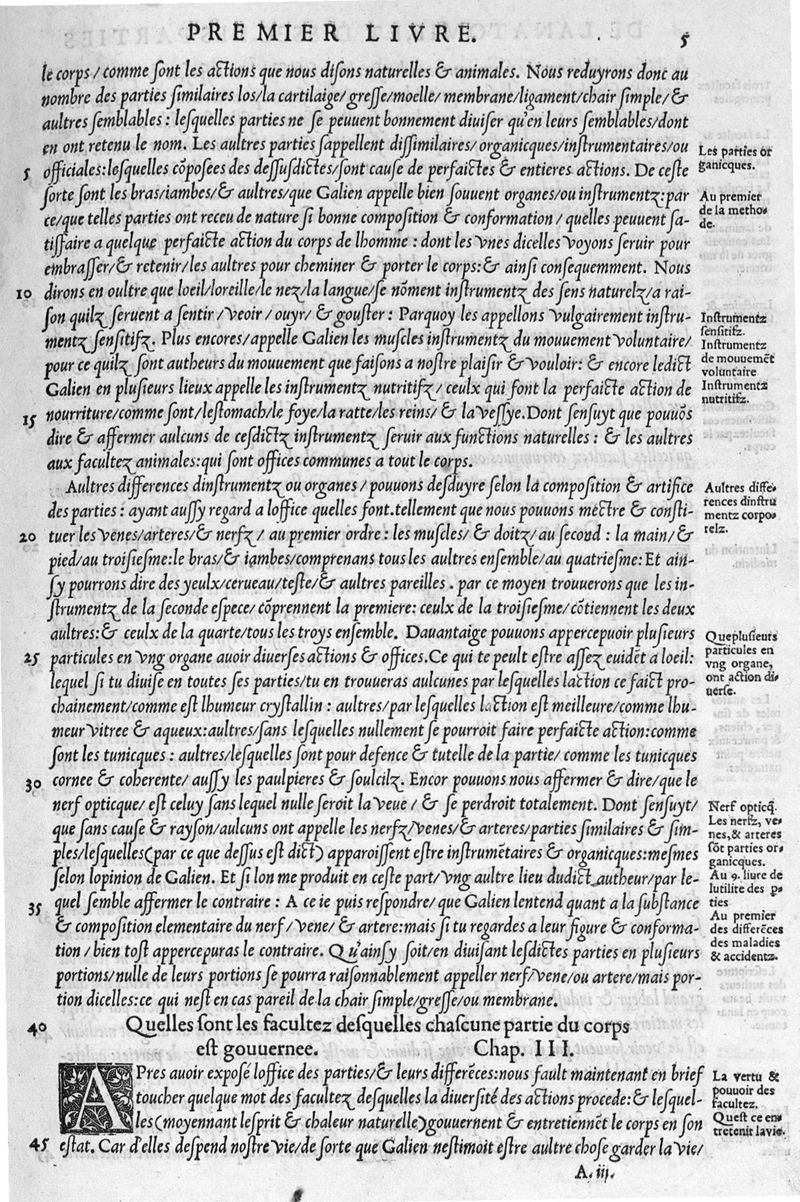 PREMIER LIVRE. 5
le corps/ comme sont les actions que nous disons naturelles & animales. Nous reduyrons donc au
nombre des parties similaires los/la cartilaige/ gresse/moelle/ membrane/ligament/chair simple/ &
aultres semblables : lesquelles parties ne se peuvent bonnement diuiser qu'en leurs semblables/dont
en ont retenu le nom. Les aultres parties sappellent dissimilaires/ organicques/instrumentaires/ou
Les parties or
ganicques.
5 officiales:lesquelles cõposees des dessusdictes/sont cause de perfaictes & entieres actions. De ceste
sorte sont les bras/iambes/& aultres/que Galien appelle bien souuent organes/ou instrumentz:par
Au premier
de la metho-
de.
ce/que telles parties ont receu de nature si bonne composition & conformation / quelles peuuent sa-
tiffaire a quelque perfaicte action du corps de lhomme : dont les vnes dicelles voyons seruir pour
embrasser/& retenir/les aultres pour cheminer & porter le corps:& ainsi consequemment. Nous
10 dirons en oultre que loeil/loreille/le nez/la langue/se nõment instrumentz des sens naturelz/a rai-
son quilz seruent a sentir /veoir / ouyr/ & gouster : Parquoy les appellons vulgairement instru-
Instrumentz
sensitifz.
mentz sensitifz. Plus encores/appelle Galien les muscles instrumentz du mouuement voluntaire/
Instrumentz
de mouuemẽt
voluntaire
pour ce quilz sont autheurs du mouuement que faisons a nostre plaisir & vouloir: & encore ledict
Galien en plusieurs lieux appelle les instrumentz nutritifz / ceulx qui font la perfaicte action de
Instrumentz
nutritifz.
15 nourriture/comme sont/lestomach/le foye/la ratte/les reins/ & la vessye.Dont sensuyt que pouuõs
dire & affermer aulcuns de cesdictz instrumentz seruir aux functions naturelles : & les aultres
aux facultez animales:qui sont offices communes a tout le corps.
Aultres differences dinstrumentz ou organes / pouuons desduyre selon la composition & artifice
Aultres diffe-
rences dinstru
mentz corpo-
relz.
des parties : ayant aussy regard a loffice quelles font.tellement que nous pouuons mectre & consti-
20 tuer les venes/arteres/& nerfz / au premier ordre : les muscles/ & doitz/ au second : la main/ &
pied/au troisiesme:le bras/ & iambes/comprenans tous les aultres ensemble/au quatriesme: Et ain-
sy pourrons dire des yeulx/cerueau/teste/& aultres pareilles . par ce moyen trouuerons que les in-
strumentz de la seconde espece/ cõprennent la premiere: ceulx de la troisiesme/ cõtiennent les deux
aultres:& ceulx de la quarte/tous les troys ensemble. Dauantaige pouuons appercepuoir plusieurs
Que plusieurs
particules en
vng organe,
ont action di-
uerse.
25 particules en vng organe auoir diuerses actions & offices.Ce qui te peult estre assez euidẽt a loeil:
lequel si tu diuise en toutes ses parties/tu en trouueras aulcunes par lesquelles laction ce faict pro-
chainement/comme est lhumeur crystallin : aultres/par lesquelles laction est meilleure/comme lhu-
meur vitree & aqueux:aultres/sans lesquelles nullement se pourroit faire perfaicte action:comme
sont les tunicques : aultres/lesquelles sont pour defence & tutelle de la partie/ comme les tunicques
30 cornee & coherente/ aussy les paulpieres & soulcilz. Encor pouuons nous affermer & dire/que le
nerf opticque/ est celuy sans lequel nulle seroit la veue / & se perdroit totalement. Dont sensuyt/
Nerf opticq̃.
Les nerfz, ve-
nes,& arteres
sõt parties or-
ganicques.
que sans cause & rayson/aulcuns ont appelle les nerfz/venes/& arteres/parties similaires & sim-
ples/lesquelles(par ce que dessus est dict) apparoissent estre instrumẽtaires & organicques:mesmes
selon lopinion de Galien. Et si lon me produit en ceste part/vng aultre lieu dudict autheur/par le-
Au 9. liure de
lutilite des p-
ties
35 quel semble affermer le contraire : A ce ie puis respondre/ que Galien lentend quant a la substance
& composition elementaire du nerf / vene/ & artere:mais si tu regardes a leur figure & conforma-
Au premier
des differẽces
des maladies
& accidentz.
tion / bien tost appercepuras le contraire. Qu'ainsy soit/en diuisant lesdictes parties en plusieurs
portions/nulle de leurs portions se pourra raisonnablement appeller nerf/vene/ou artere/mais por-
tion dicelles:ce qui nest en cas pareil de la chair simple/gresse/ou membrane.
40 Quelles sont les facultez desquelles chascune partie du corps
est gouuernee. Chap. III.
APres auoir exposé loffice des parties/& leurs differẽces:nous fault maintenant en brief
La vertu &
pouuoir des
facultez.
toucher quelque mot des facultez desquelles la diuersité des actions procede:& lesquel-
les (moyennant lesprit & chaleur naturelle) gouuernent & entretiennẽt le corps en son
Quest ce en-
tretenir la vie.
45 estat. Car d'elles despend nostre vie/de sorte que Galien nestimoit estre aultre chose garder la vie/
A. iij.